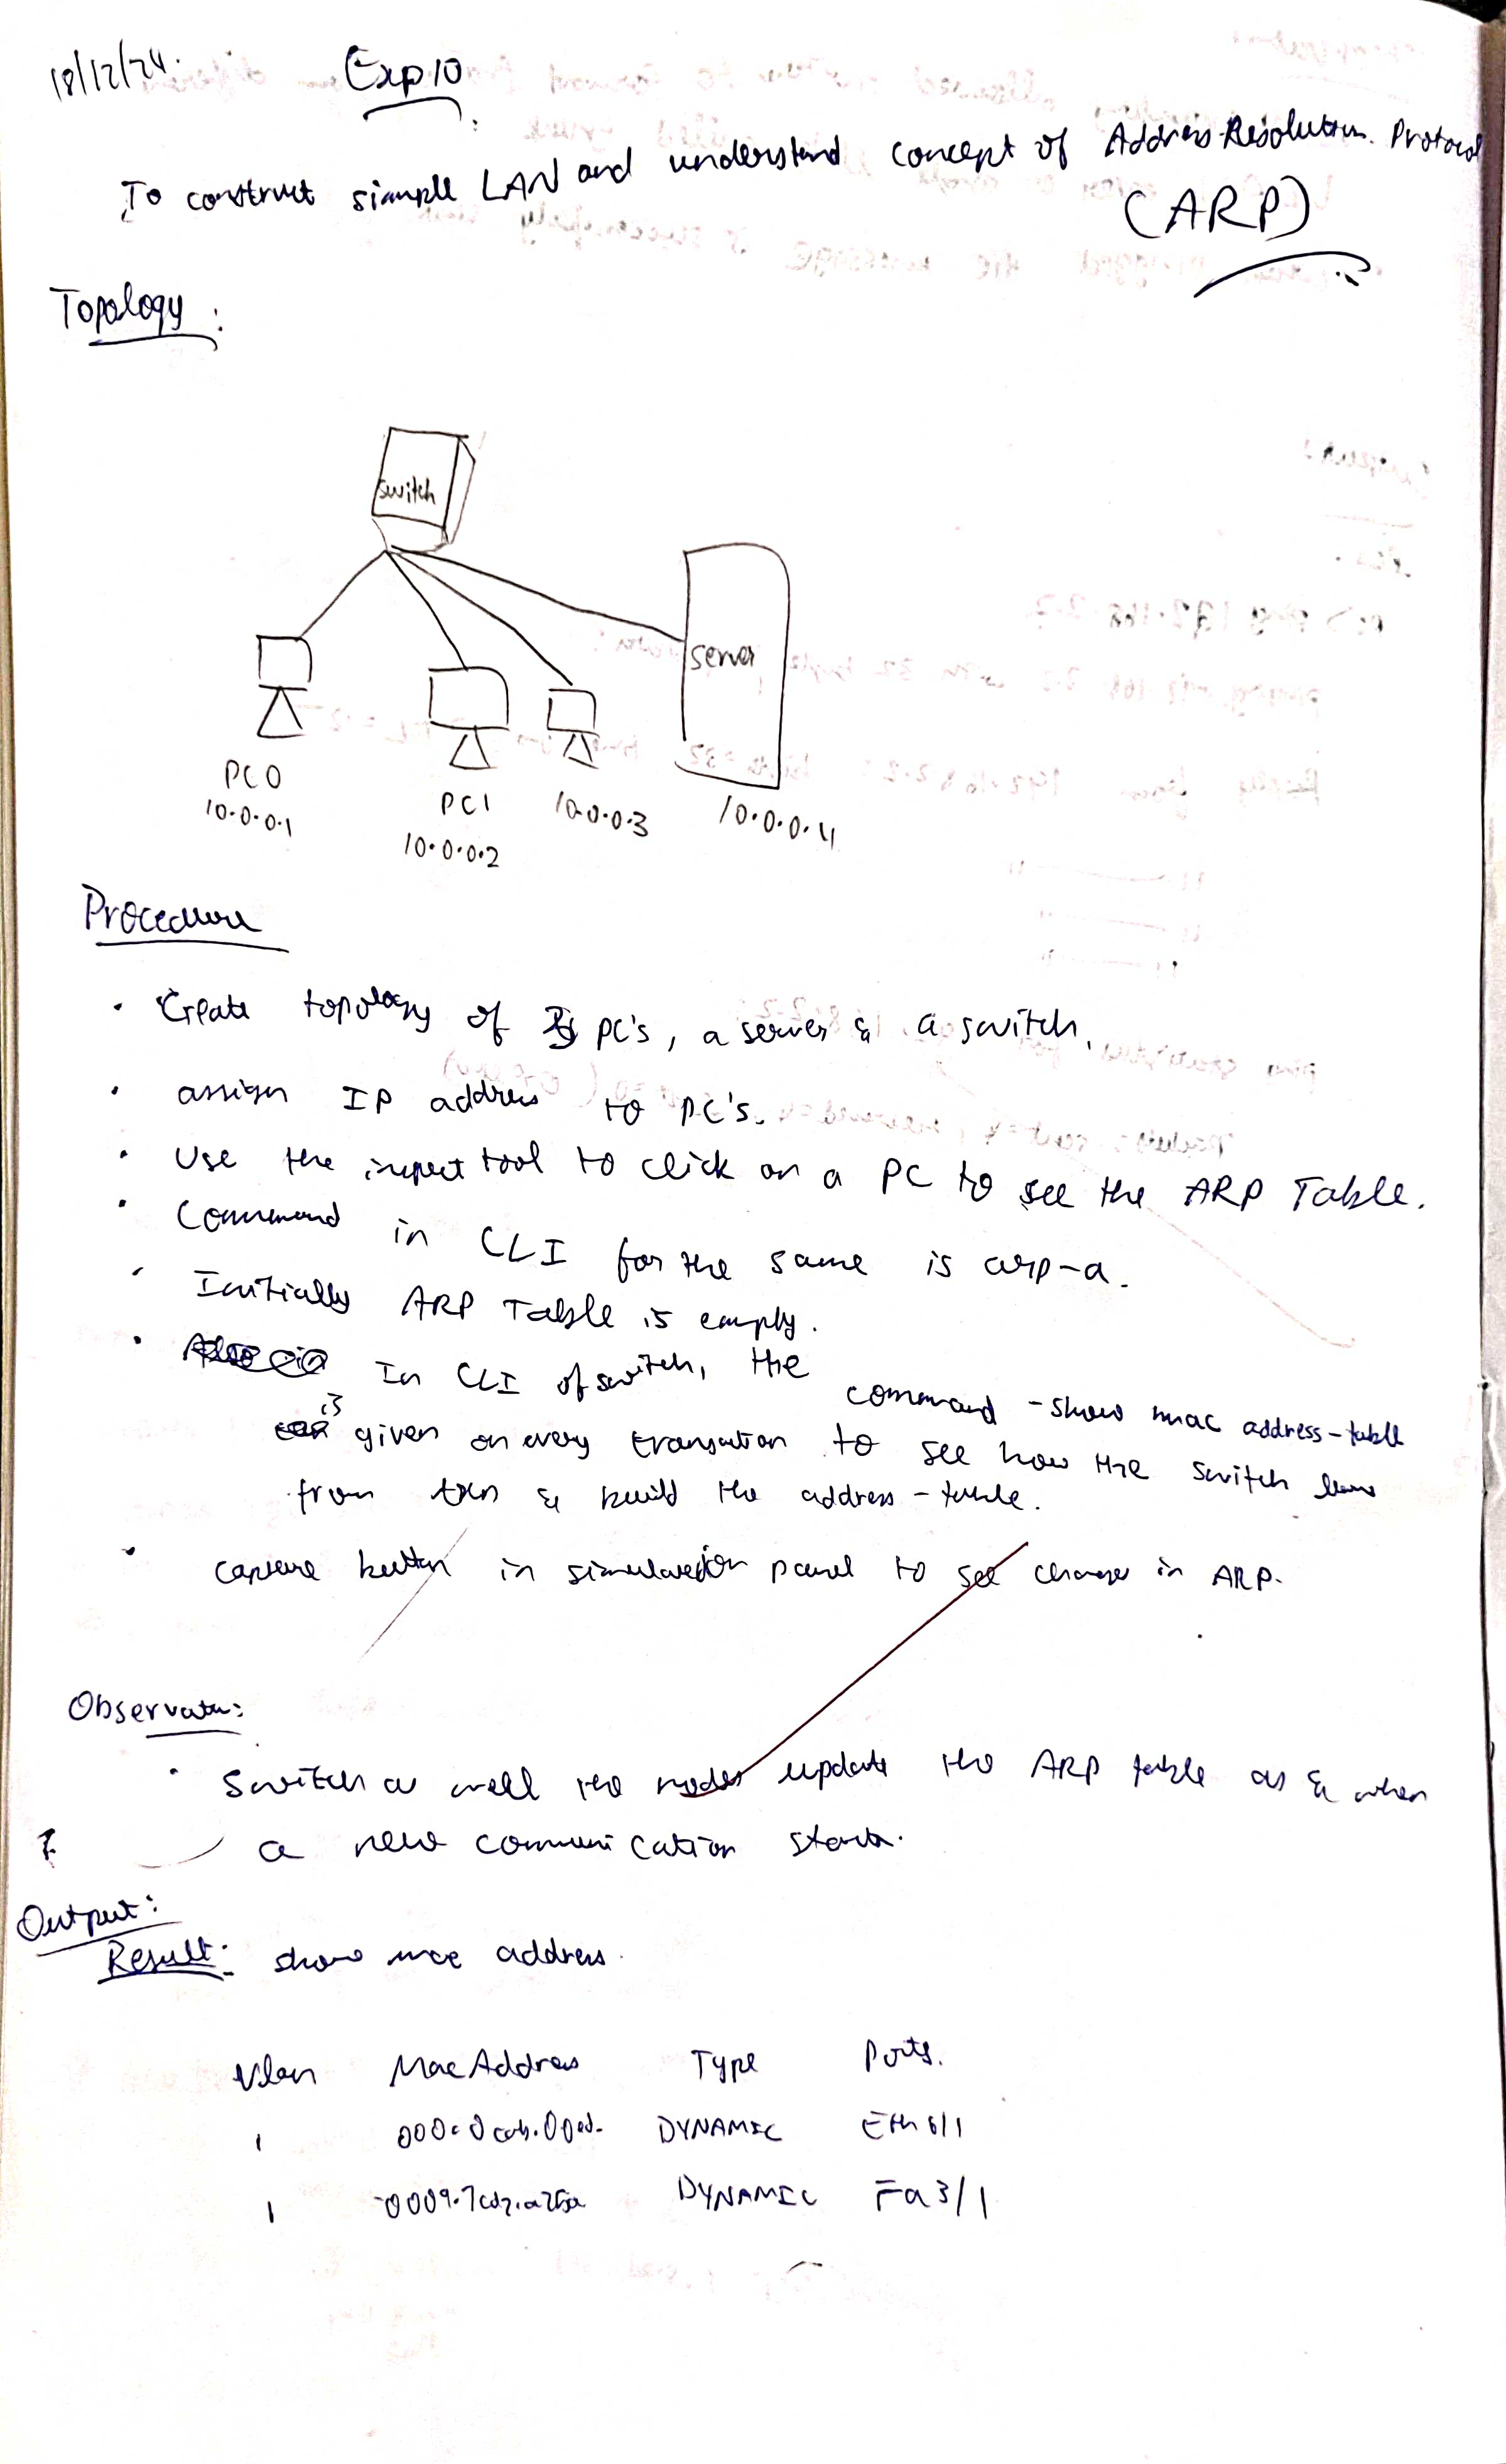 18/12/24.
Exp 10
To construct simple LAN and understand concept of Address Resolution Protocol
(ARP)
Topology :
switch
server
PC0
10.0.0.1
PC1
10.0.0.2
10.0.0.3
10.0.0.4
Procedure
· Create topology of PC's, a server & a switch.
· assign IP address to PC's.
· Use the inspect tool to click on a PC to see the ARP Table.
· Command in CLI for the same is arp-a.
· Initially ARP Table is empty.
· In CLI of switch, the command - show mac address-table
is given on every transation to see how the switch
from txn & build the address - table.
· capture button in simulation panel to see changes in ARP.
Observatn:
· Switch as well the nodes update the ARP table as & when
a new communication starts.
Output:
Result: show mac address.
Vlan Mac Address Type Ports.
1 DYNAMIC Eth 6/1
1 DYNAMIC Fa 3/1